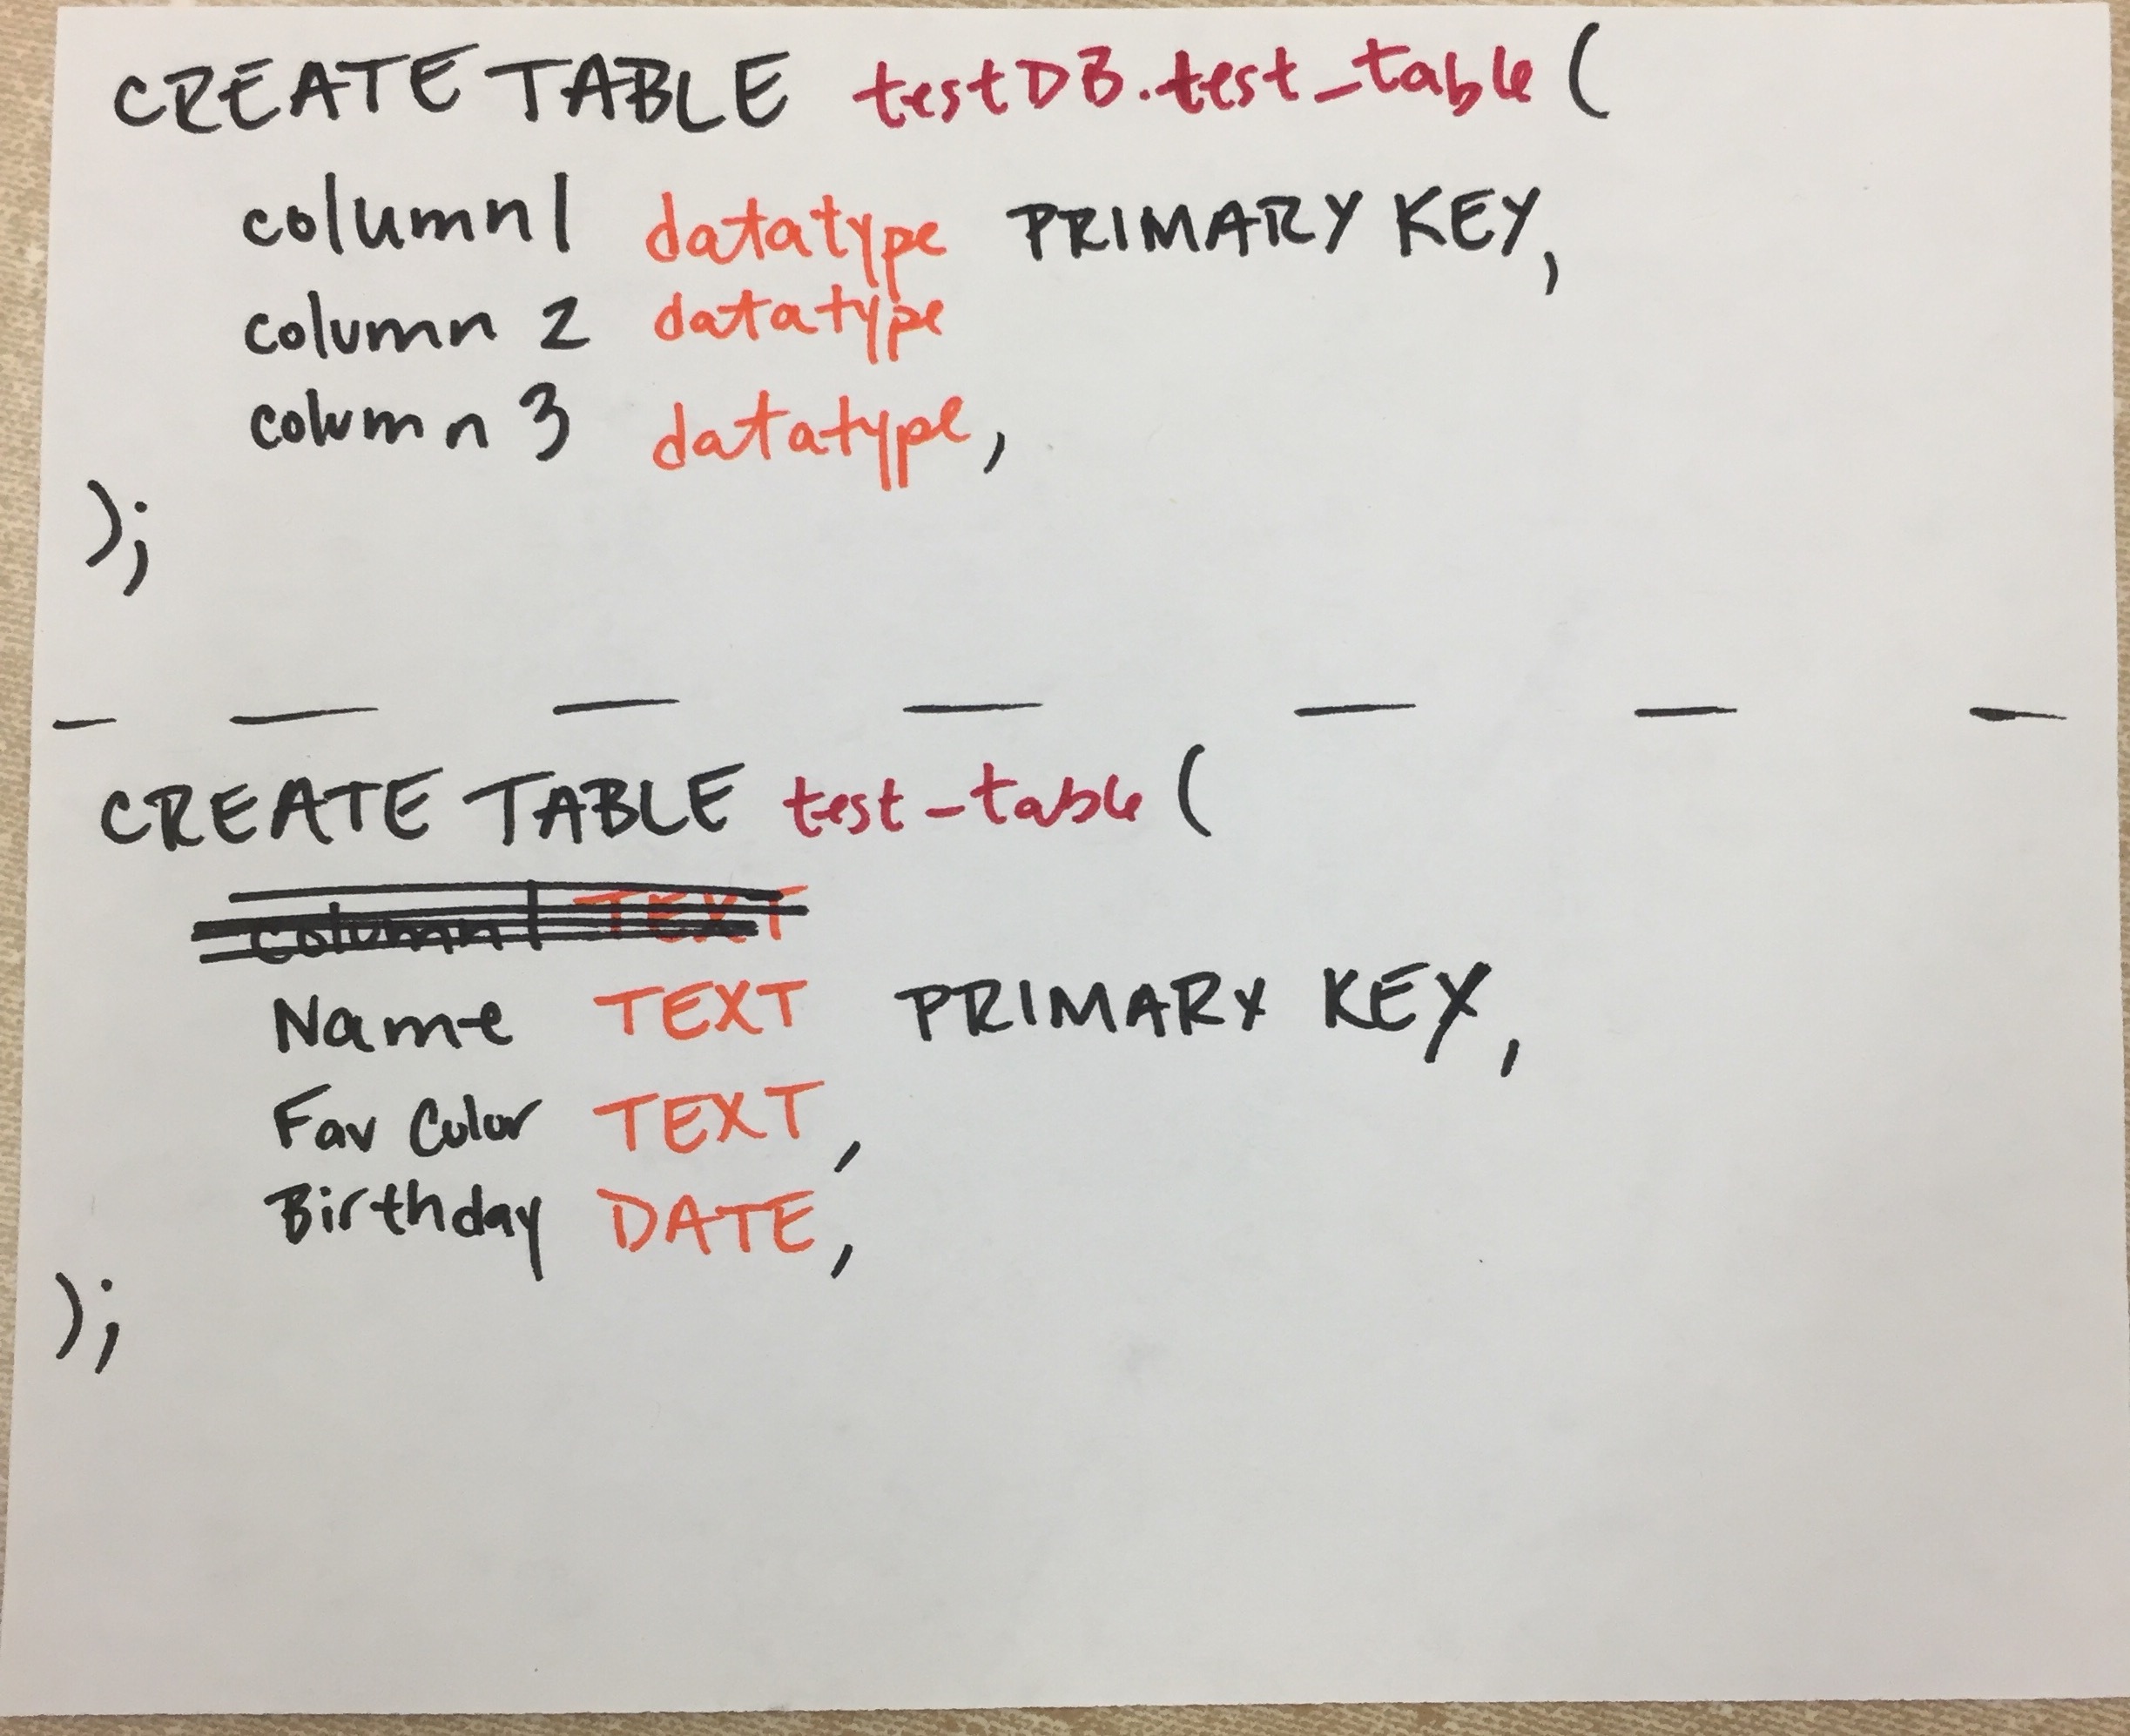 CREATE TABLE testDB.test_table (
column1 datatype PRIMARY KEY,
column 2 datatype
column 3 datatype,
);
CREATE TABLE test-table (
column1 TEXT
Name TEXT PRIMARY KEY,
Fav Color TEXT,
Birthday DATE,
);